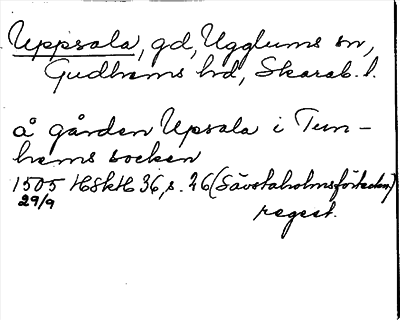 Uppsala, gd, Ugglums sn,
Gudhems hd, Skarab. l.
å gården Upsala i Tun-
hems socken
1505 HSkH 36, s. 26 (Sävstaholmsförteckn.)
29/9 regest.